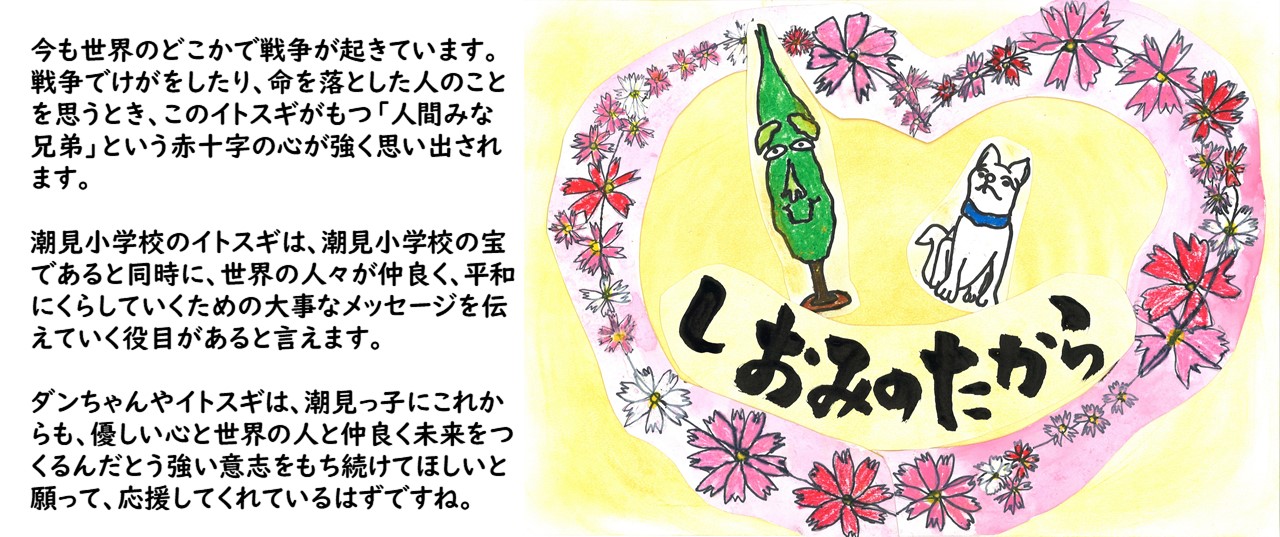 今も世界のどこかで戦争が起きています。
戦争でけがをしたり、命を落とした人のこと
を思うとき、このイトスギがもつ「人間みな
兄弟」という赤十字の心が強く思い出され
ます。
潮見小学校のイトスギは、潮見小学校の宝
であると同時に、世界の人々が仲良く、平和
にくらしていくための大事なメッセージを伝
えていく役目があると言えます。
ダンちゃんやイトスギは、潮見っ子にこれか
らも、優しい心と世界の人と仲良く未来をつ
くるんだとう強い意志をもち続けてほしいと
願って、応援してくれているはずですね。
しおみのたから